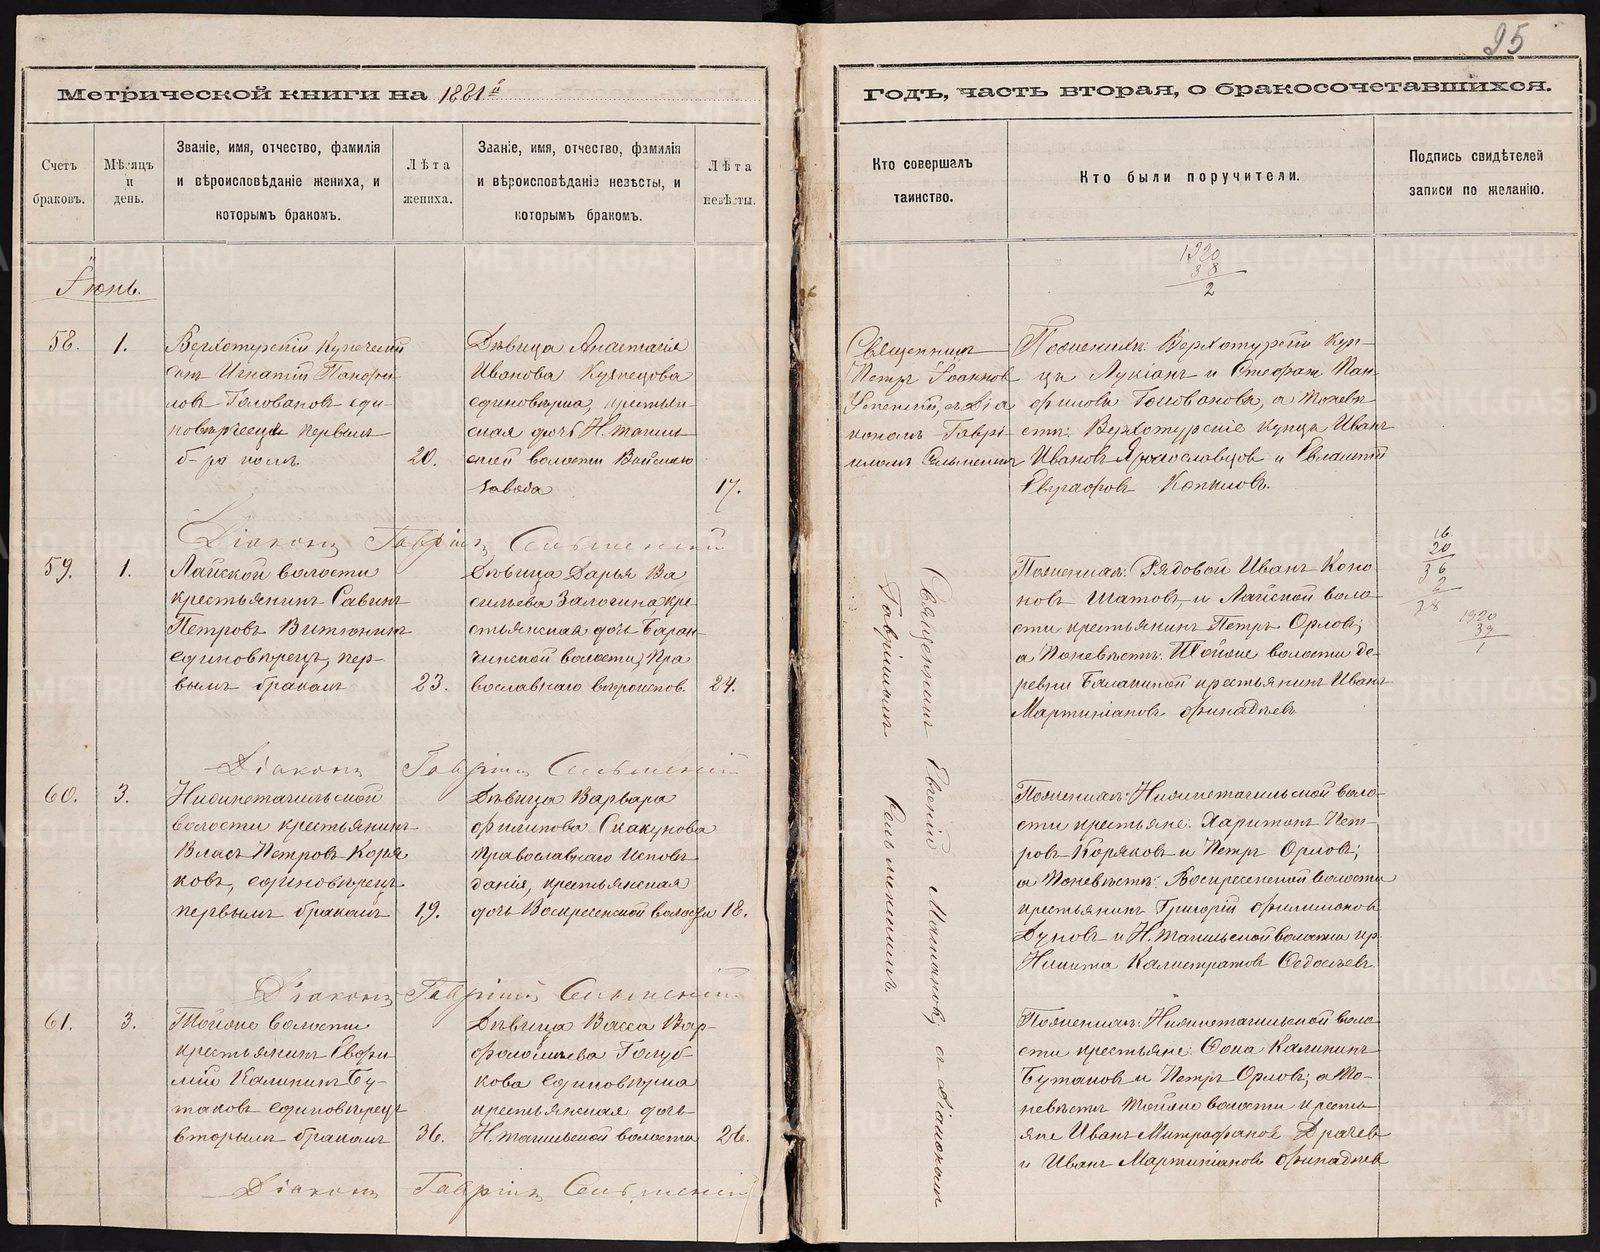 25
Метрической книги на 1881й
годъ, часть вторая, о бракосочетавшихся.
Счетъ браковъ.
Мѣсяцъ и день.
Званіе, имя, отчество, фамилія
и вѣроисповѣданіе жениха, и
которымъ бракомъ.
Лѣта жениха.
Званіе, имя, отчество, фамилія
и вѣроисповѣданіе невѣсты, и
которымъ бракомъ.
Лѣта невѣсты.
Кто совершалъ
таинство.
Кто были поручители.
Подпись свидѣтелей
записи по желанію.
Іюнь.
58.
1.
Верхотурскій Купеческій
сынъ Игнатій Панфи-
ловъ Головановъ еди-
новѣрецъ первымъ
б-ракомъ
20.
Дѣвица Анастасія
Иванова Кузнецова
единовѣрка, крестьян-
ская дочь Н. Тагиль-
ской волости
завода
17.
Священникъ
Петръ Іоаннов
Успенскій, съ Діа
кономъ Гаврі-
иломъ Сельменским
Поженихѣ: Верхотурскіи Куп-
цы Лукіанъ и Стефанъ Пан-
филовы Головановы, а Поневѣ-
стѣ: Верхотурскіе купцы Иванъ
Ивановъ Ярославцовъ и Евлампій
Евграфовъ Копыловъ.
Діаконъ Гавріилъ Сельменскій
59.
1.
Лайской волости
крестьянинъ Савинъ
Петровъ Витюнинъ
единовѣрецъ, пер-
вымъ бракомъ
23.
Дѣвица Дарья Ва
сильева Залогина, кре-
стьянская дочь Баран-
чинской волости, Пра
вославнаго вѣроиспов.
24.
Поженихѣ: Рядовой Иванъ Коно
новъ Шатовъ, и Лайской воло-
сти крестьянинъ Петръ Орловъ;
а Поневѣстѣ: Тойже волости де-
ревни Балакиной крестьянинъ Иванъ
Мартиніановъ Финадѣевъ
Діаконъ Гавріилъ Сельменскій
60.
3.
Нижнетагильской
волости крестьянинъ
Власъ Петровъ Коря
ковъ, единовѣрецъ
первымъ бракомъ
19.
Дѣвица Варвара
Филипова Скакунова
Православнаго Исповѣ
данія, крестьянская
дочь Воскресенской волости
18.
Поженихѣ: Нижнетагильской воло-
сти крестьяне: Харитонъ Пет-
ровъ Коряковъ и Петръ Орловъ;
а Поневѣстѣ: Воскресенской волости
крестьянинъ Григорій Филимоновъ
и Н. Тагильской волости кр.
Никита Калистратовъ Ѳедосѣевъ
Діаконъ Гавріилъ Сельменскій
61.
3.
Тойже волости
крестьянинъ Евфи
мій Калининъ Бу-
таковъ единовѣрецъ
вторымъ бракомъ
36.
Дѣвица Васса Вар-
фоломѣева Голуб-
кова единовѣрка
крестьянская дочь
Н. Тагильской волости
26.
Поженихѣ: Нижнетагильской воло-
сти крестьяне: Ѳока Калининъ
Бутаковъ и Петръ Орловъ; а По-
невѣстѣ тойже волости кресть-
яне Иванъ Митрофановъ Драчевъ
и Иванъ Мартиніановъ Финадѣевъ
Діаконъ Гавріилъ Сельменскій
Священникъ Евгеній съ Діакономъ
Гавріиломъ Сельменскимъ.
1920
38
2
16
20
36
2
38
1920
39
1